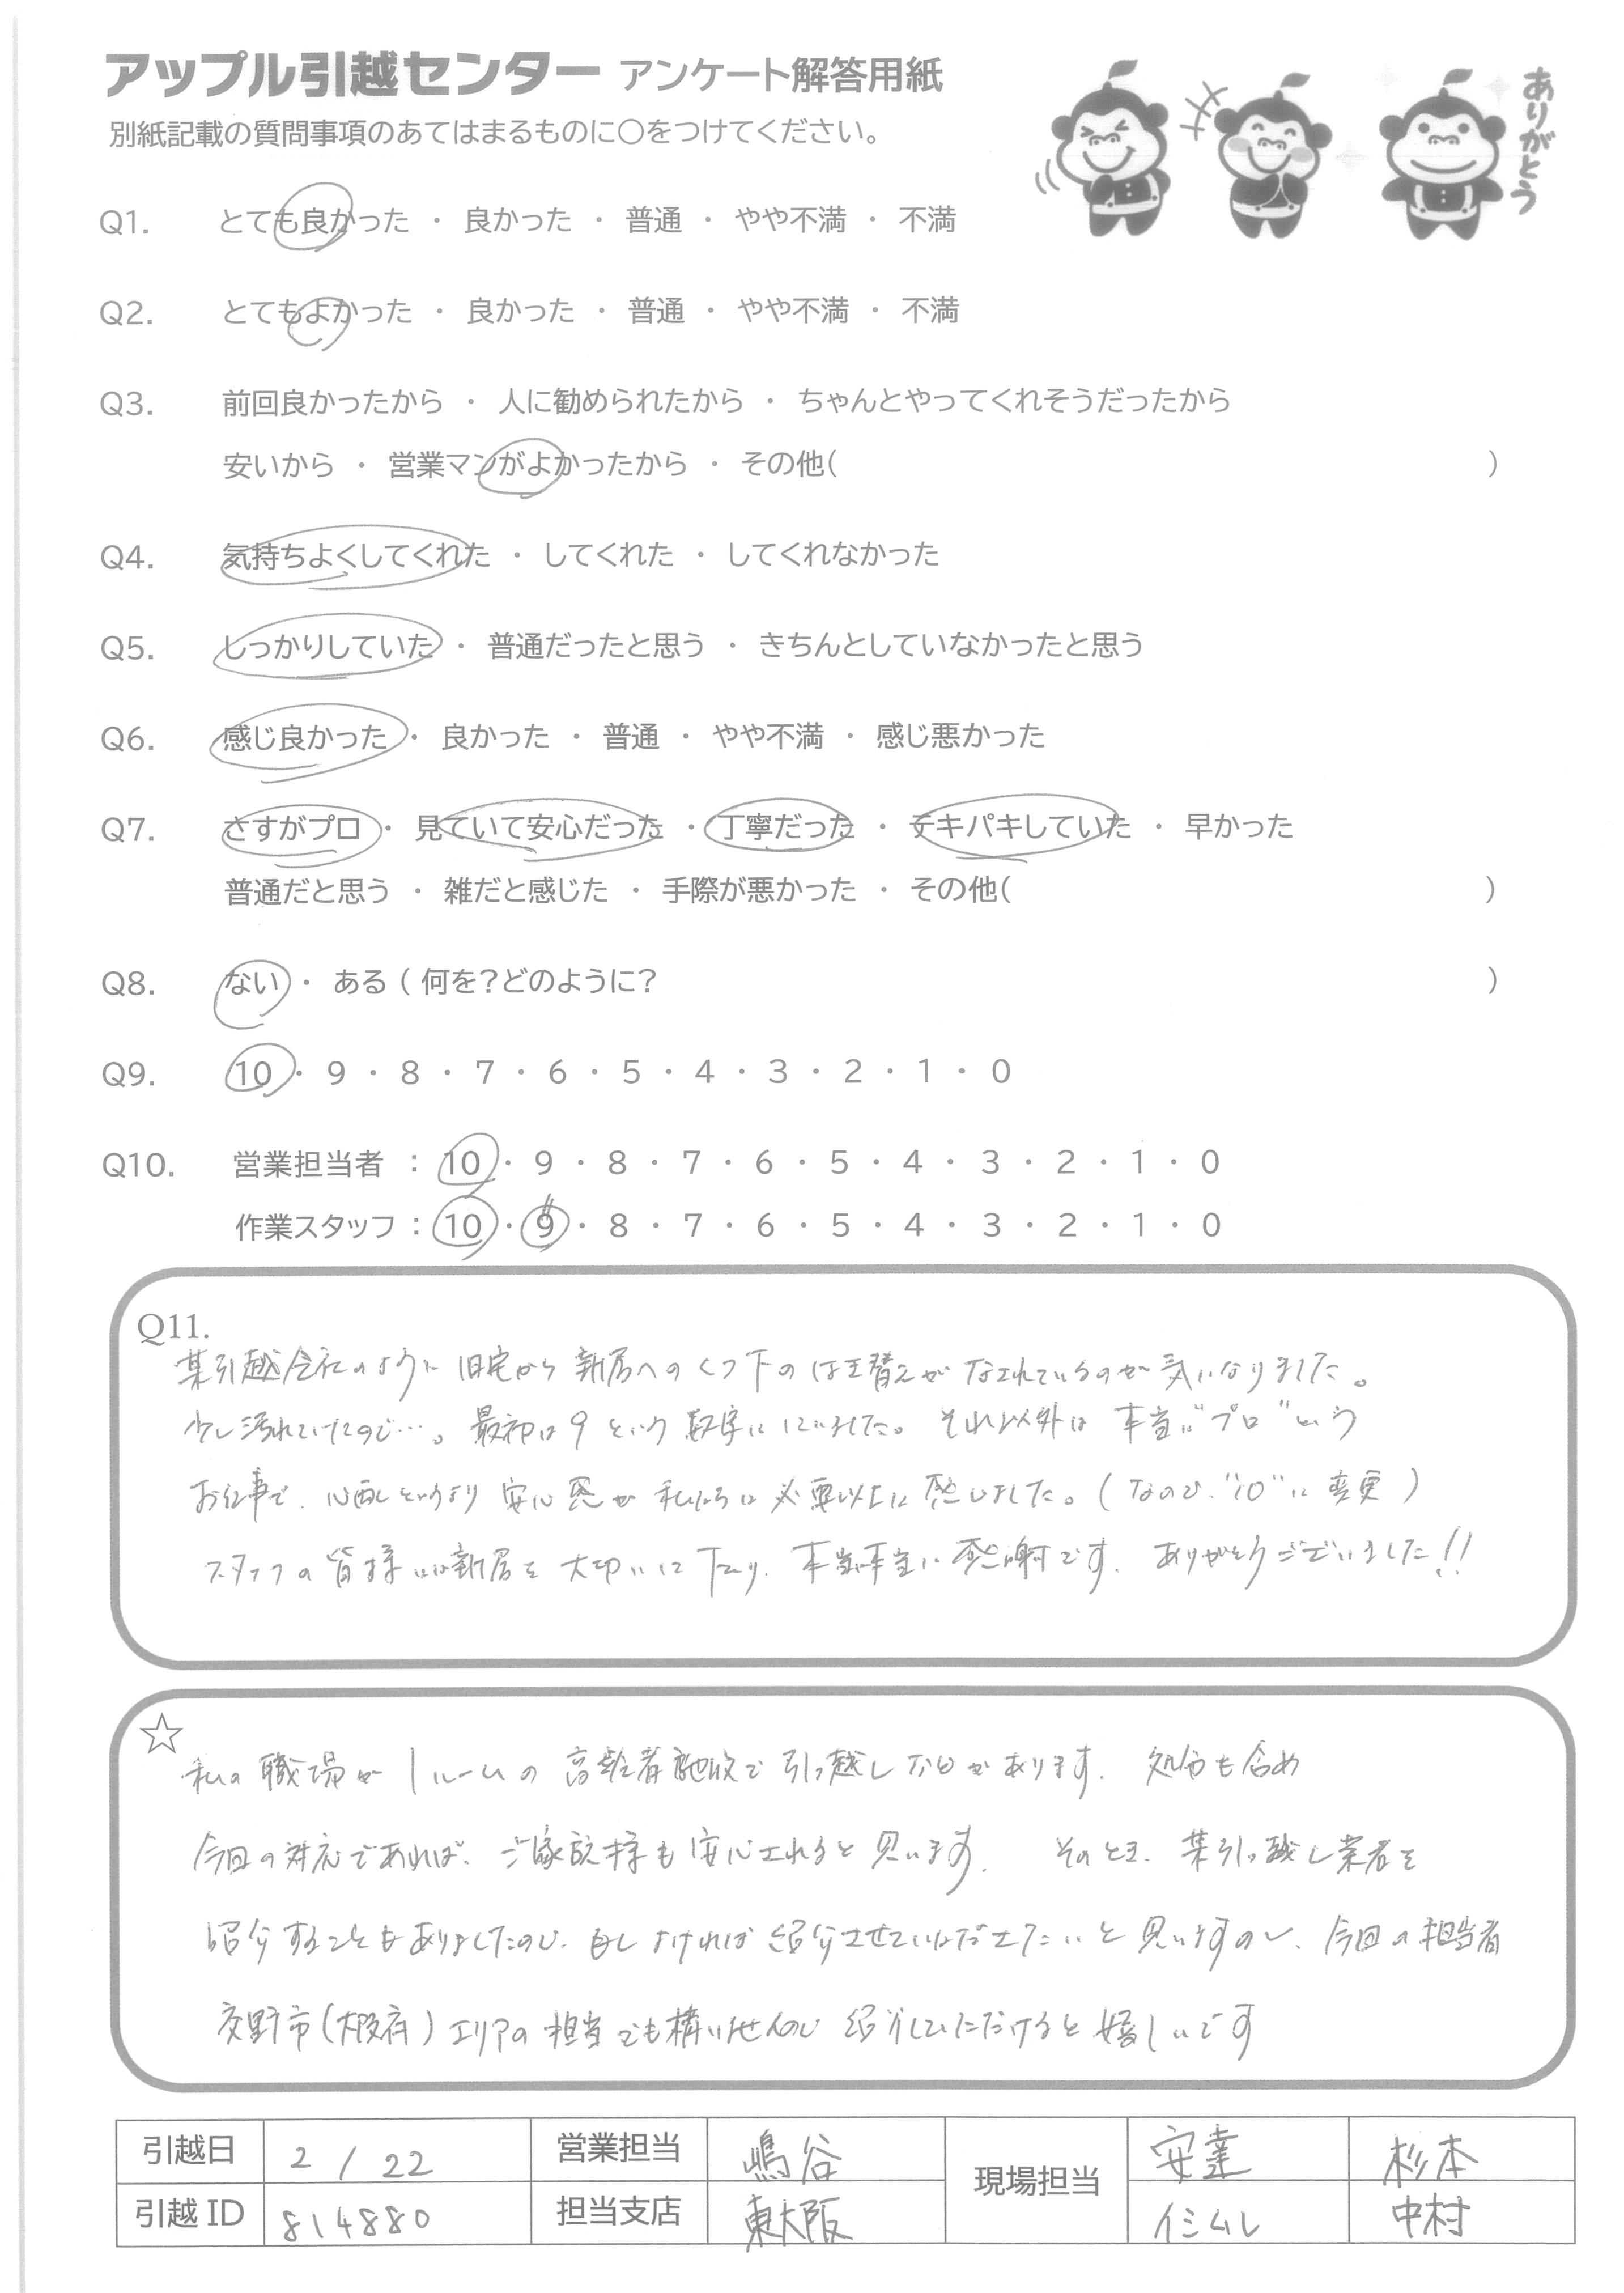 アップル引越センター アンケート解答用紙
別紙記載の質問事項のあてはまるものに〇をつけてください。
ありがとう
Q1. とても良かった ・ 良かった ・ 普通 ・ やや不満 ・ 不満
Q2. とてもよかった ・ 良かった ・ 普通 ・ やや不満 ・ 不満
Q3. 前回良かったから ・ 人に勧められたから ・ ちゃんとやってくれそうだったから
安いから ・ 営業マンがよかったから ・ その他( )
Q4. 気持ちよくしてくれた ・ してくれた ・ してくれなかった
Q5. しっかりしていた ・ 普通だったと思う ・ きちんとしていなかったと思う
Q6. 感じ良かった ・ 良かった ・ 普通 ・ やや不満 ・ 感じ悪かった
Q7. さすがプロ ・ 見ていて安心だった ・ 丁寧だった ・ テキパキしていた ・ 早かった
普通だと思う ・ 雑だと感じた ・ 手際が悪かった ・ その他( )
Q8. ない ・ ある ( 何を？どのように？ )
Q9. 10 ・ 9 ・ 8 ・ 7 ・ 6 ・ 5 ・ 4 ・ 3 ・ 2 ・ 1 ・ 0
Q10. 営業担当者 : 10 ・ 9 ・ 8 ・ 7 ・ 6 ・ 5 ・ 4 ・ 3 ・ 2 ・ 1 ・ 0
作業スタッフ : 10 ・ 9 ・ 8 ・ 7 ・ 6 ・ 5 ・ 4 ・ 3 ・ 2 ・ 1 ・ 0
Q11.
某引越会社のように 旧宅から 新居へのくつ下のはき替えがなされているのか気になりました。
少し汚れていたので…。最初は9という数字にしていました。それ以外は 本当に"プロ"という
お仕事で、心配というより 安心感が私たちは必要以上に感じました。(なので、"10"に変更)
スタッフの皆様には新居を大切にして下さり、本当に本当に感謝です。ありがとうございました!!
☆
私の職場が1ルームの高齢者施設で引っ越しな日があります。処分も含め
今回の対応であれば、ご家族様も安心されると思います。 そのとき、某引っ越し業者を
紹介することもありましたので、もしよければ紹介させていただきたいと思いますので、今回の担当者
交野市(大阪府)エリアの担当でも構いませんので 紹介していただけると嬉しいです
引越日 2/22 営業担当 嶋谷 現場担当 安達 杉本
引越ID 814880 担当支店 東大阪 イシムレ 中村